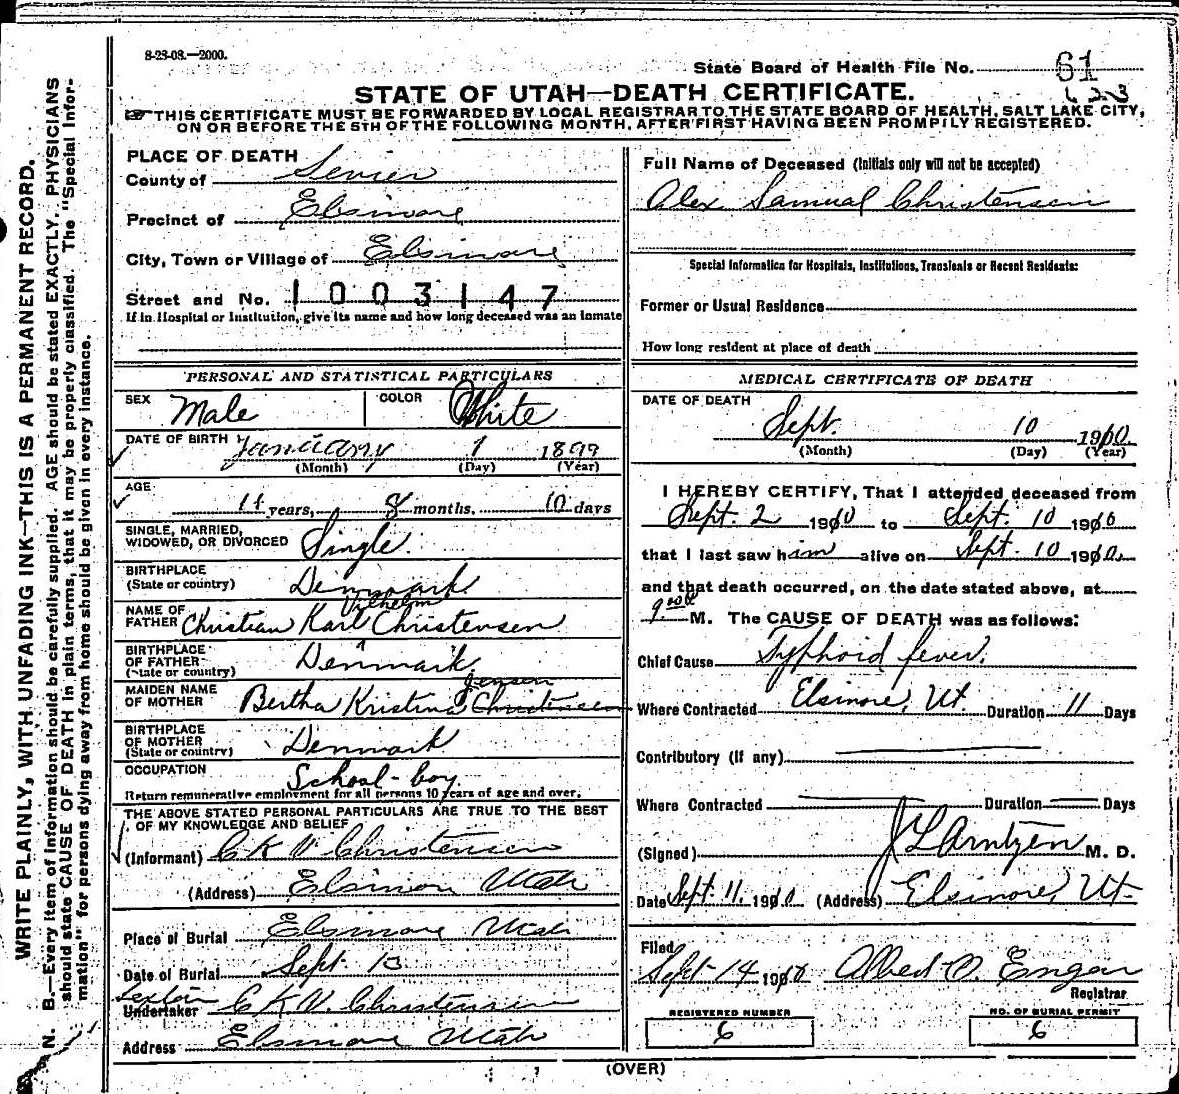 8-23-08.—2000.
State Board of Health File No. 61
623
STATE OF UTAH—DEATH CERTIFICATE.
THIS CERTIFICATE MUST BE FORWARDED BY LOCAL REGISTRAR TO THE STATE BOARD OF HEALTH, SALT LAKE CITY,
ON OR BEFORE THE 5TH OF THE FOLLOWING MONTH, AFTER FIRST HAVING BEEN PROMPTLY REGISTERED.
WRITE PLAINLY, WITH UNFADING INK—THIS IS A PERMANENT RECORD.
N. B.—Every item of information should be carefully supplied. AGE should be stated EXACTLY. PHYSICIANS
should state CAUSE OF DEATH in plain terms, that it may be properly classified. The "Special Infor-
mation" for persons dying away from home should be given in every instance.
PLACE OF DEATH
County of Sevier
Precinct of Elsinore
City, Town or Village of Elsinore
Street and No. 1003147
If in Hospital or Institution, give its name and how long deceased was an inmate
PERSONAL AND STATISTICAL PARTICULARS
SEX Male COLOR White
DATE OF BIRTH January 1 1899
(Month) (Day) (Year)
AGE
11 years, 8 months, 10 days
SINGLE, MARRIED,
WIDOWED, OR DIVORCED Single
BIRTHPLACE
(State or country) Denmark
Vilhelm
NAME OF
FATHER Christian Karl Christensen
BIRTHPLACE
OF FATHER
(State or country) Denmark
Jensen
MAIDEN NAME
OF MOTHER Bertha Kristina Christensen
BIRTHPLACE
OF MOTHER
(State or country) Denmark
OCCUPATION School-boy
Return remunerative employment for all persons 10 years of age and over.
THE ABOVE STATED PERSONAL PARTICULARS ARE TRUE TO THE BEST
OF MY KNOWLEDGE AND BELIEF
(Informant) C K V Christensen
(Address) Elsinore Utah
Place of Burial Elsinore Utah
Date of Burial Sept. 13
Sexton
Undertaker C K V. Christensen
Address Elsinore Utah
Full Name of Deceased (Initials only will not be accepted)
Alex Samual Christensen
Special Information for Hospitals, Institutions, Transients or Recent Residents:
Former or Usual Residence
How long resident at place of death
MEDICAL CERTIFICATE OF DEATH
DATE OF DEATH
Sept. 10 1910
(Month) (Day) (Year)
I HEREBY CERTIFY, That I attended deceased from
Sept. 2 1910 to Sept. 10 1910
that I last saw him alive on Sept. 10 1910
and that death occurred, on the date stated above, at
M. The CAUSE OF DEATH was as follows:
Chief Cause Typhoid fever.
Where Contracted Elsinore, Ut. Duration 11 Days
Contributory (if any)
Where Contracted Duration Days
(Signed) J L Arntzen M. D.
Date Sept. 11. 1910 (Address) Elsinore, Ut.
Filed
Sept 14 1910 Albert O. Engar
Registrar
REGISTERED NUMBER
6
NO. OF BURIAL PERMIT
6
(OVER)